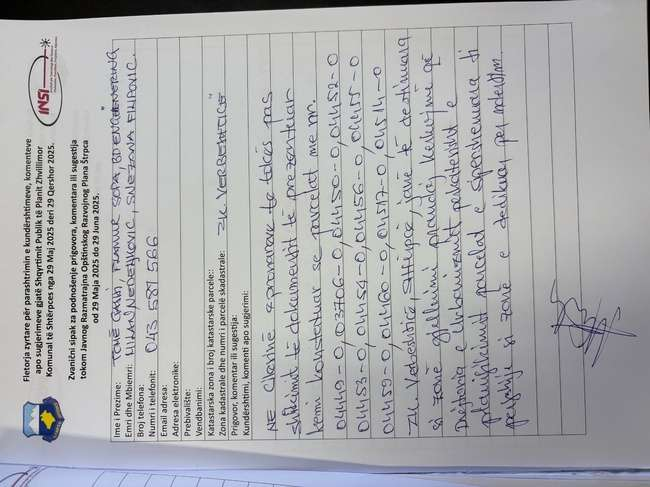 Fletorja zyrtare për parashtrimin e kundërshtimeve, komenteve
apo sugjerimeve gjatë Shqyrtimit Publik të Planit Zhvillimor
Komunal të Shtërpces nga 29 Maj 2025 deri 29 Qershor 2025.
Zvanični sipak za podnošenje prigovora, komentara ili sugestija
tokom Javnog Razmatrajna Opštinskog Razvojnog Plana Štrpca
od 29 Maja 2025 do 29 Juna 2025.
INSI
Ime i Prezime: TOMË GASHI, FLAMUR SOPA, BD ENGINEERING
Emri dhe Mbiemri: NEDELKOVIC, SNEZANA FILIPOVIC.
Broj telefona:
Numri i telefonit: 043 587 566
Email adresa:
Adresa elektronike:
Prebivalište:
Vendbanimi:
Katastarska zona i broj katastarske parcele:
Zona kadastrale dhe numri i parcelë skadastrale: ZK. VERBESHTICË
Prigovor, komentar ili sugestija:
Kundërshtimi, komenti apo sugjerimi:
NE Cilësinë e pronarave të tokës pas
shikimit të dokumentit të prezentuar
kemi konstatuar se parcelat me nr.
04449-0, 03706-0, 04450-0, 04452-0
04453-0, 04454-0, 04456-0, 04455-0
04459-0, 04460-0, 04517-0, 04514-0
ZK. Verbeshticë, Shtërpcë, janë të destinuara
si zonë gjelbrimi prandaj kërkojmë që
Drejtoria e Urbanizmit përkatësisht e
planifikimit parcelat e sipërshënuara ti
përfshijë si zonë e dedikuar për ndërtim.